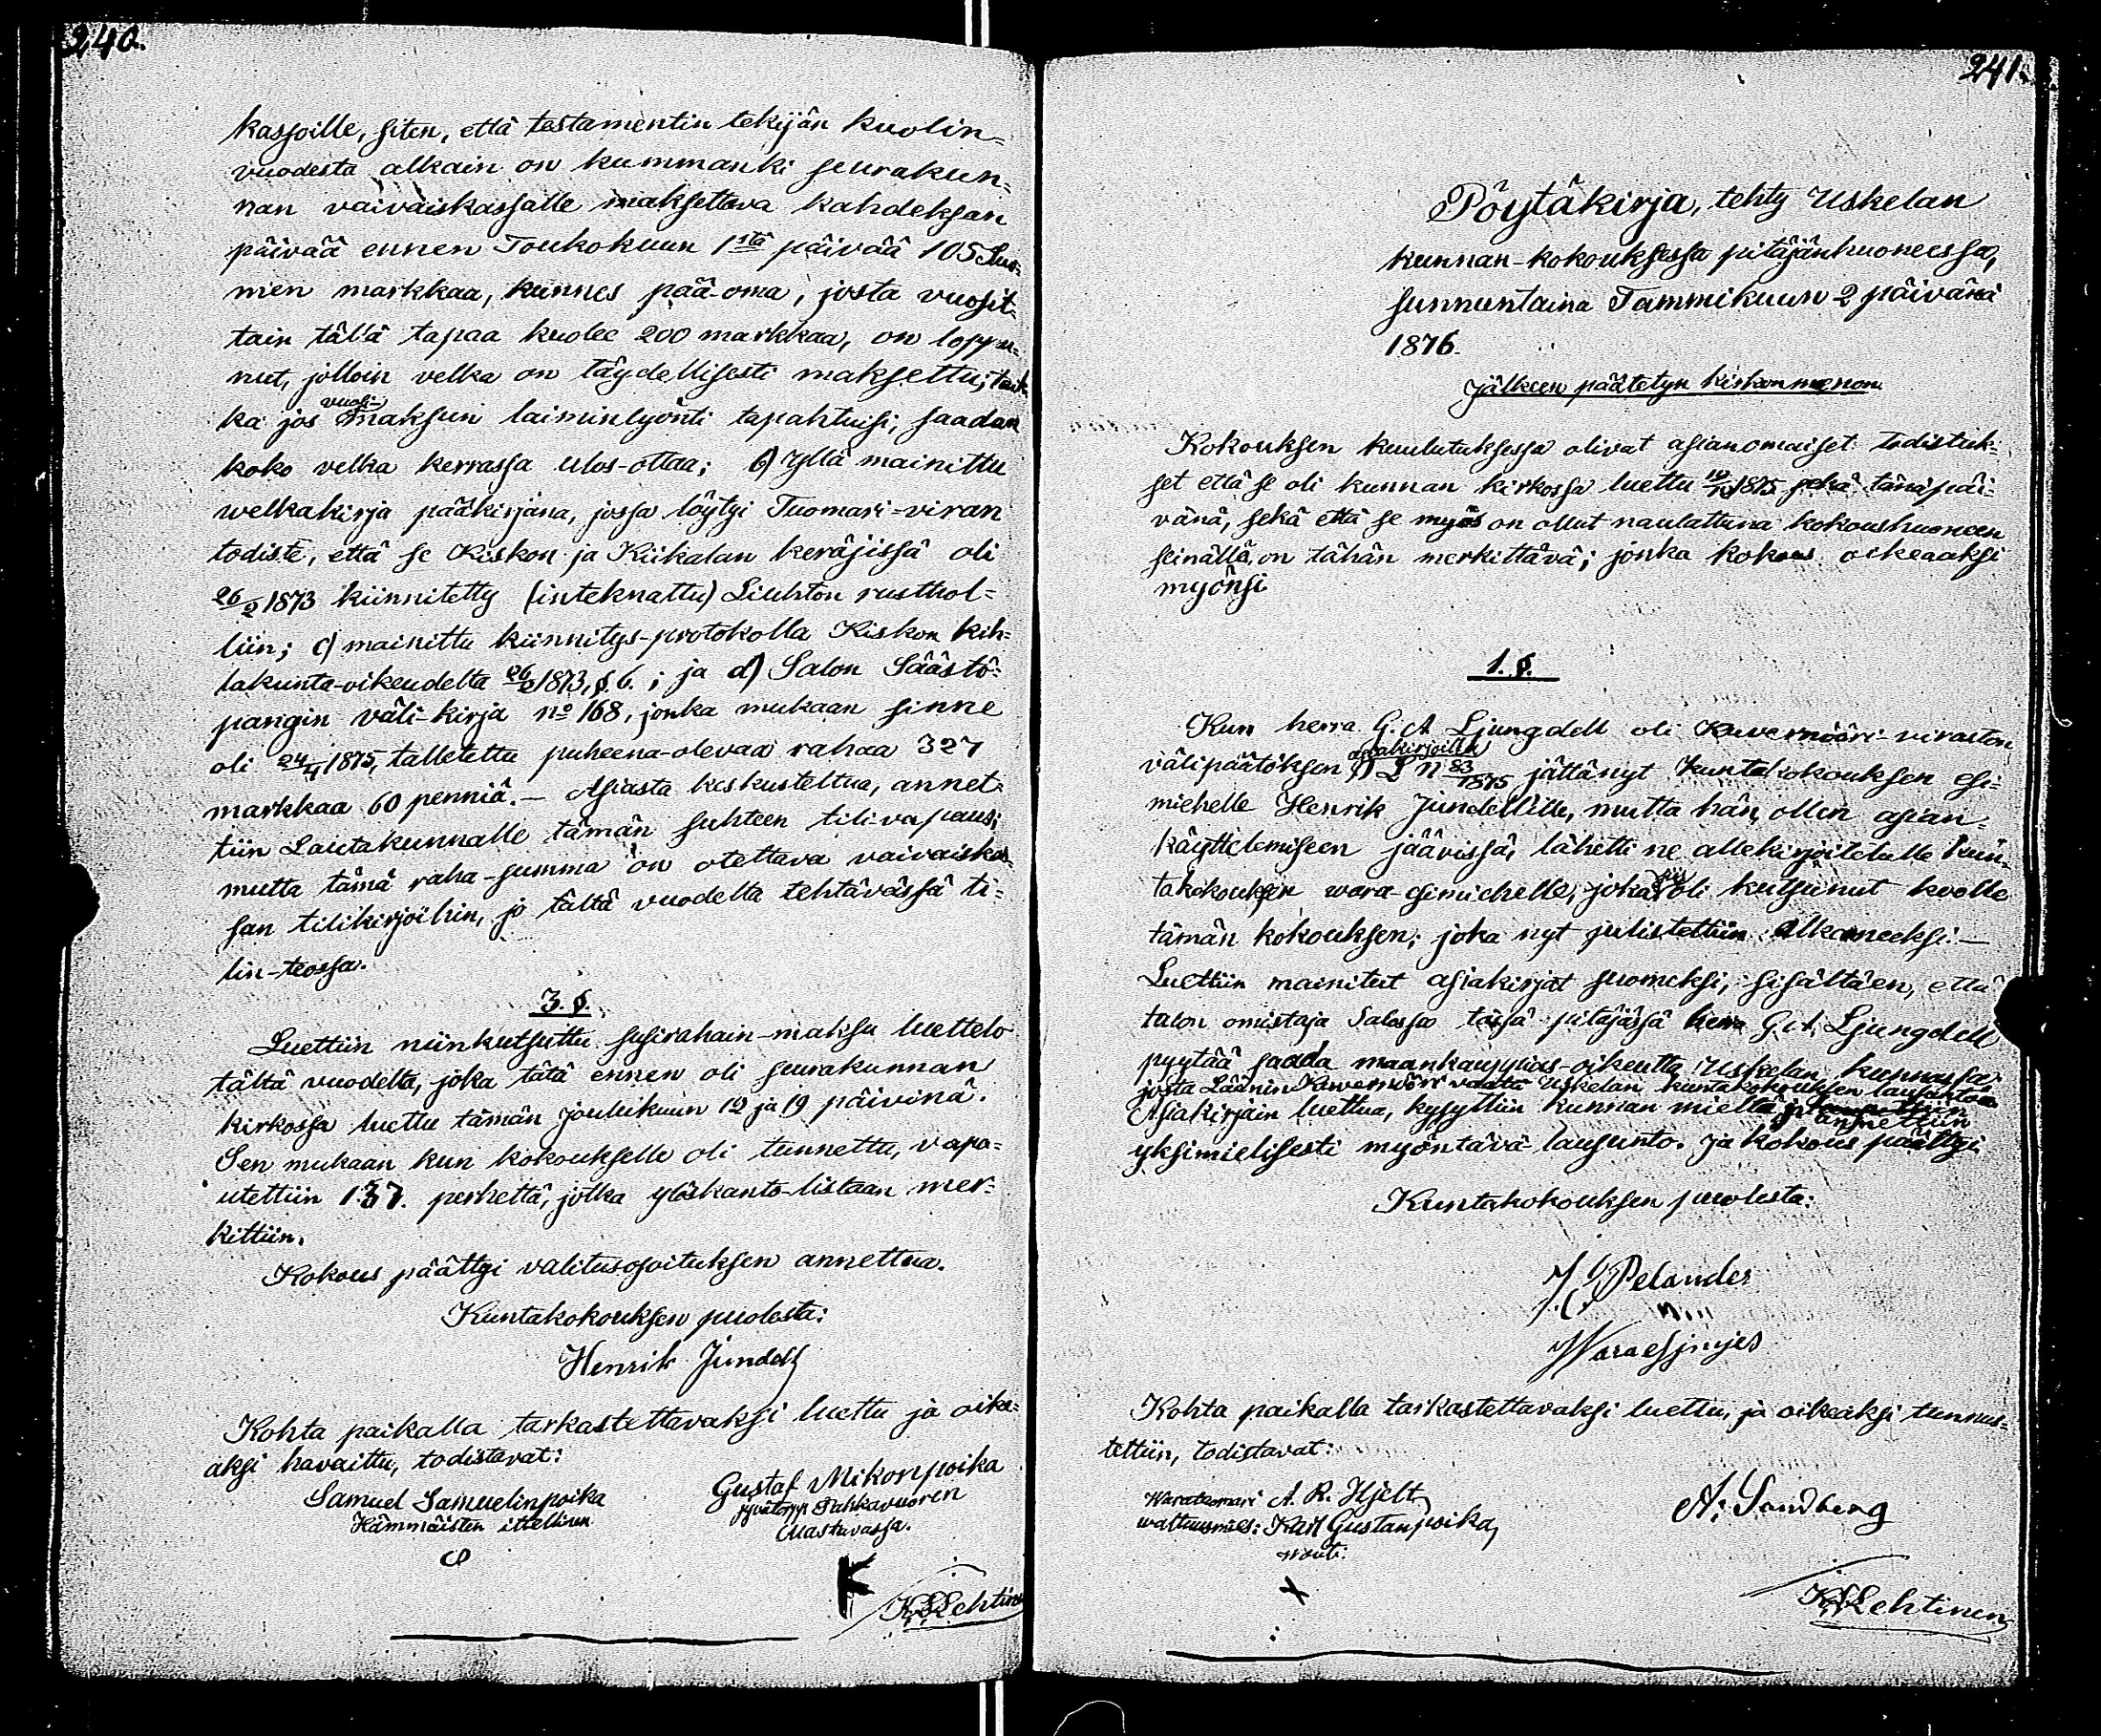 240.
kassoille, siten, että testamentin tekijän kuolin-
vuodesta alkain on kummanki seurakun-
nan vaivaiskassalle maksettava kahdeksan
päivää ennen Toukokuun 1stä päivää 105 Suo-
men markkaa, kunnes pää-oma, josta vuosit-
tain tällä tapaa kuolee 200 markkaa, on loppu-
nut, jolloin velka on täydellisesti maksettu; taik-
ka jos vuosi-maksun laiminlyönti tapahtuisi, saadan
koko velka kerrassa ulos-ottaa; b) Yllä mainittu
welkakirja pääkirjana, jossa löytyi Tuomari-viran
todiste, että se Kiskon ja Kiikalan keräjissä oli
26/2 1873 kiinnitetty (inteknattu) Liuhton rusthol-
liin; c) mainittu kiinnitys-protokolla Kiskon kih-
lakunta-oikeudelta 26/2 1873, §. 6.; ja d) Salon Säästö-
pangin väli-kirja no 168, jonka mukaan sinne
oli 24/4 1875, talletettu puheena-olevaa rahaa 327
markkaa 60 penniä. — Asiasta keskusteltua, annet-
tiin Lautakunnalle tämän suhteen tili-vapaus;
mutta tämä raha-summa on otettava vaivaiskas-
san tilikirjoihin, jo tältä vuodelta tehtävässä ti-
lin-teossa.
3. §.
Luettiin niinkutsuttu susirahain-maksu luettelo
tältä vuodelta, joka tätä ennen oli seurakunnan
kirkossa luettu tämän joulukuun 12 ja 19 päivinä.
Sen mukaan kun kokoukselle oli tunnettu, vapa-
utettiin 137. perhettä, jotka ylöskanto-listaan mer-
kittiin.
Kokous päättyi valitusosoituksen annettua.
Kuntakokouksen puolesta:
Henrik Jündell
Kohta paikalla tarkastettavaksi luettu ja oike-
aksi havaittu, todistavat:
Samuel Samuelinpoika
Hämmäisten ittellinen
Gustaf Mikonpoika
Tahkavuoren
K
K S Lehtinen
241.
Pöytäkirja, tehty Uskelan
kunnan-kokouksessa pitäjänhuoneessa,
sunnuntaina Tammikuun 2 päivänä
1876.
Jälkeen päätetyn kirkonmenon.
Kokouksen kuulutuksessa olivat asianomaiset todistuk-
set että se oli kunnan kirkossa luettu 1875 sekä tänäpäi-
vänä, sekä että se myös on ollut naulattuna kokoushuoneen
seinällä, on tähän merkittävä; jonka kokous oikeaaksi
myönsi
1. §.
Kun herra G. A Ljungdell oli Kuvernööri-viraston
välipäätöksen asiakirjoilla L n 83/1875 jättänyt kuntakokouksen esi-
miehelle Henrik Jündellille, mutta hän, ollen asian-
käyttelemiseen jäävissä, lähetti ne allekirjoitetulle kun-
takokouksen wara-esimiehelle, joka siis oli kutsunut koolle
tämän kokouksen; joka nyt julistettiin alkaneeksi. —
Luettiin mainitut asiakirjat suomeksi, sisältäen, että
talon omistaja Salossa tässä pitäjässä herra G. A. Ljungdell
pyytää saada maankauppias-oikeutta Uskelan kunnassa
josta Läänin Kuvernööri vaatii Uskelan kuntakokouksen lausuntoa
Asiakirjain luettua, kysyttiin kunnan mieltä ja annettiin
yksimielisesti myöntävä lausunto. ja kokous päättyi
Kuntakokouksen puolesta:
Pelander
Waraesimies
Kohta paikalla tarkastettavaksi luettu, ja oikeaksi tunnus-
tettiin, todistavat:
Waratuomari A. R. Hjelt,
waltuusmies: Karl Gustanpoika,
wouti.
A. Sandberg
X
K S Lehtinen